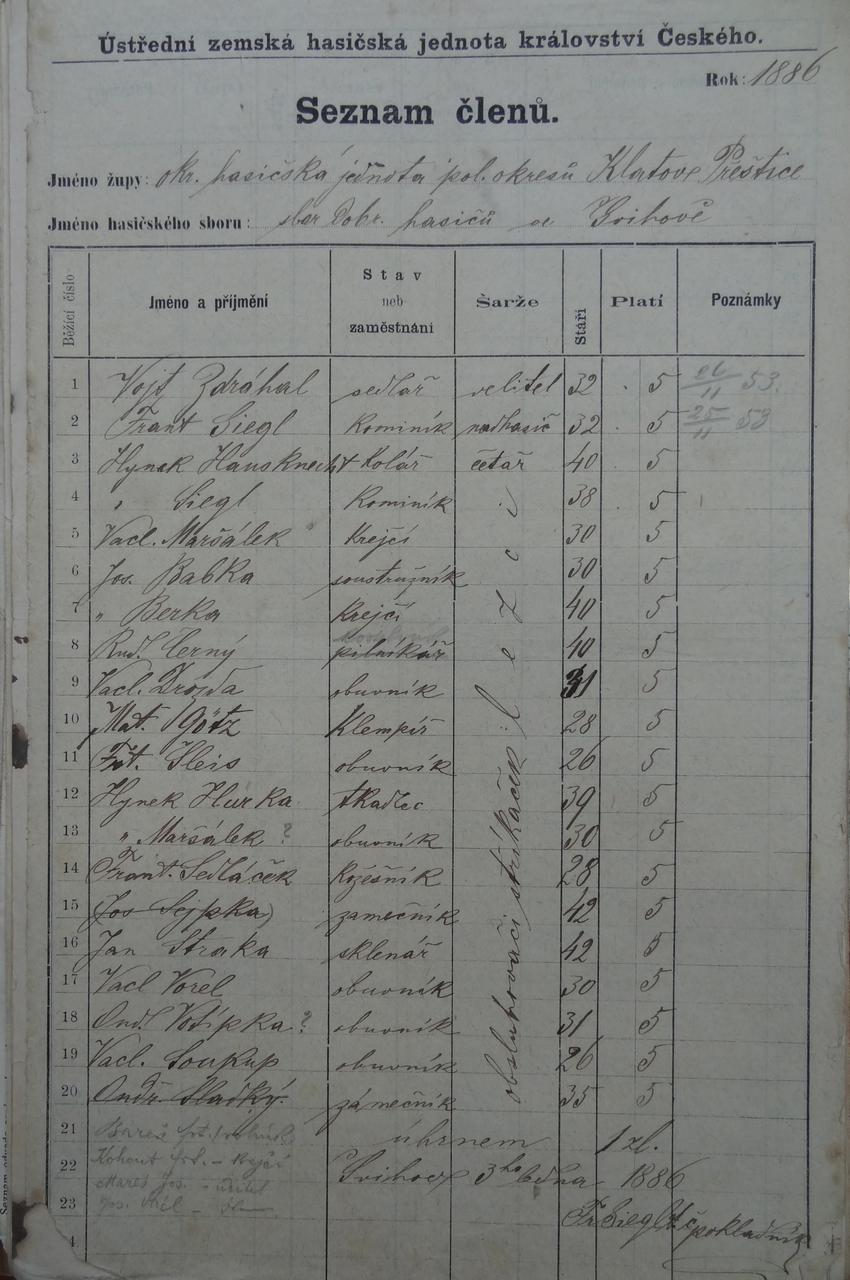 Ústřední zemská hasičská jednota království Českého.
Rok: 1886
Seznam členů.
Jméno župy: okr. hasičská jednota pol. okresů Klatove Přeštice
Jméno hasičského sboru: sbor Dobr. hasičů ve Švihově
Běžící číslo Jméno a příjmění Stav neb zaměstnání Šarže Stáří Platí Poznámky
1 Vojt Zdráhal sedlář velitel 32 5 26/11 53.
2 Frant Siegl Kominík nadhasič 32 5 25/11 53
3 Hynek Hausknecht Kolář četař 40 5
4 " Siegl Kominík 38 5
5 Vacl. Maršálek Krejčí 30 5
6 Jos. Babka soustružník 30 5
7 " Berka Krejčí 40 5
8 Rud. Černý pilníkář 40 5
9 Vacl. Drozda obuvník 31 5
10 Mat. Götz Klempíř 28 5
11 Frt. Sleis obuvník 26 5
12 Hynek Hurka tkadlec 39 5
13 " Maršálek ? obuvník 30 5
14 Frant. Sedláček Kožešník 28 5
15 (Jos Sejpka) zamečník 42 5
16 Jan Straka sklenář 42 5
17 Vacl Vorel obuvník 30 5
18 Ond. Votipka ? obuvník 31 5
19 Vacl. Soukup obuvník 26 5
20 Ondř. Sladký. zámečník 35 5
obsluhovači stříkaček
lezci
21 Bareš frt. úhrnem 1 zl.
22 Kohout frt. – Krejčí Švihov 3ho ledna 1886
Mareš Jos.
23 Jos.
Fr Siegl t. č. pokladník
4